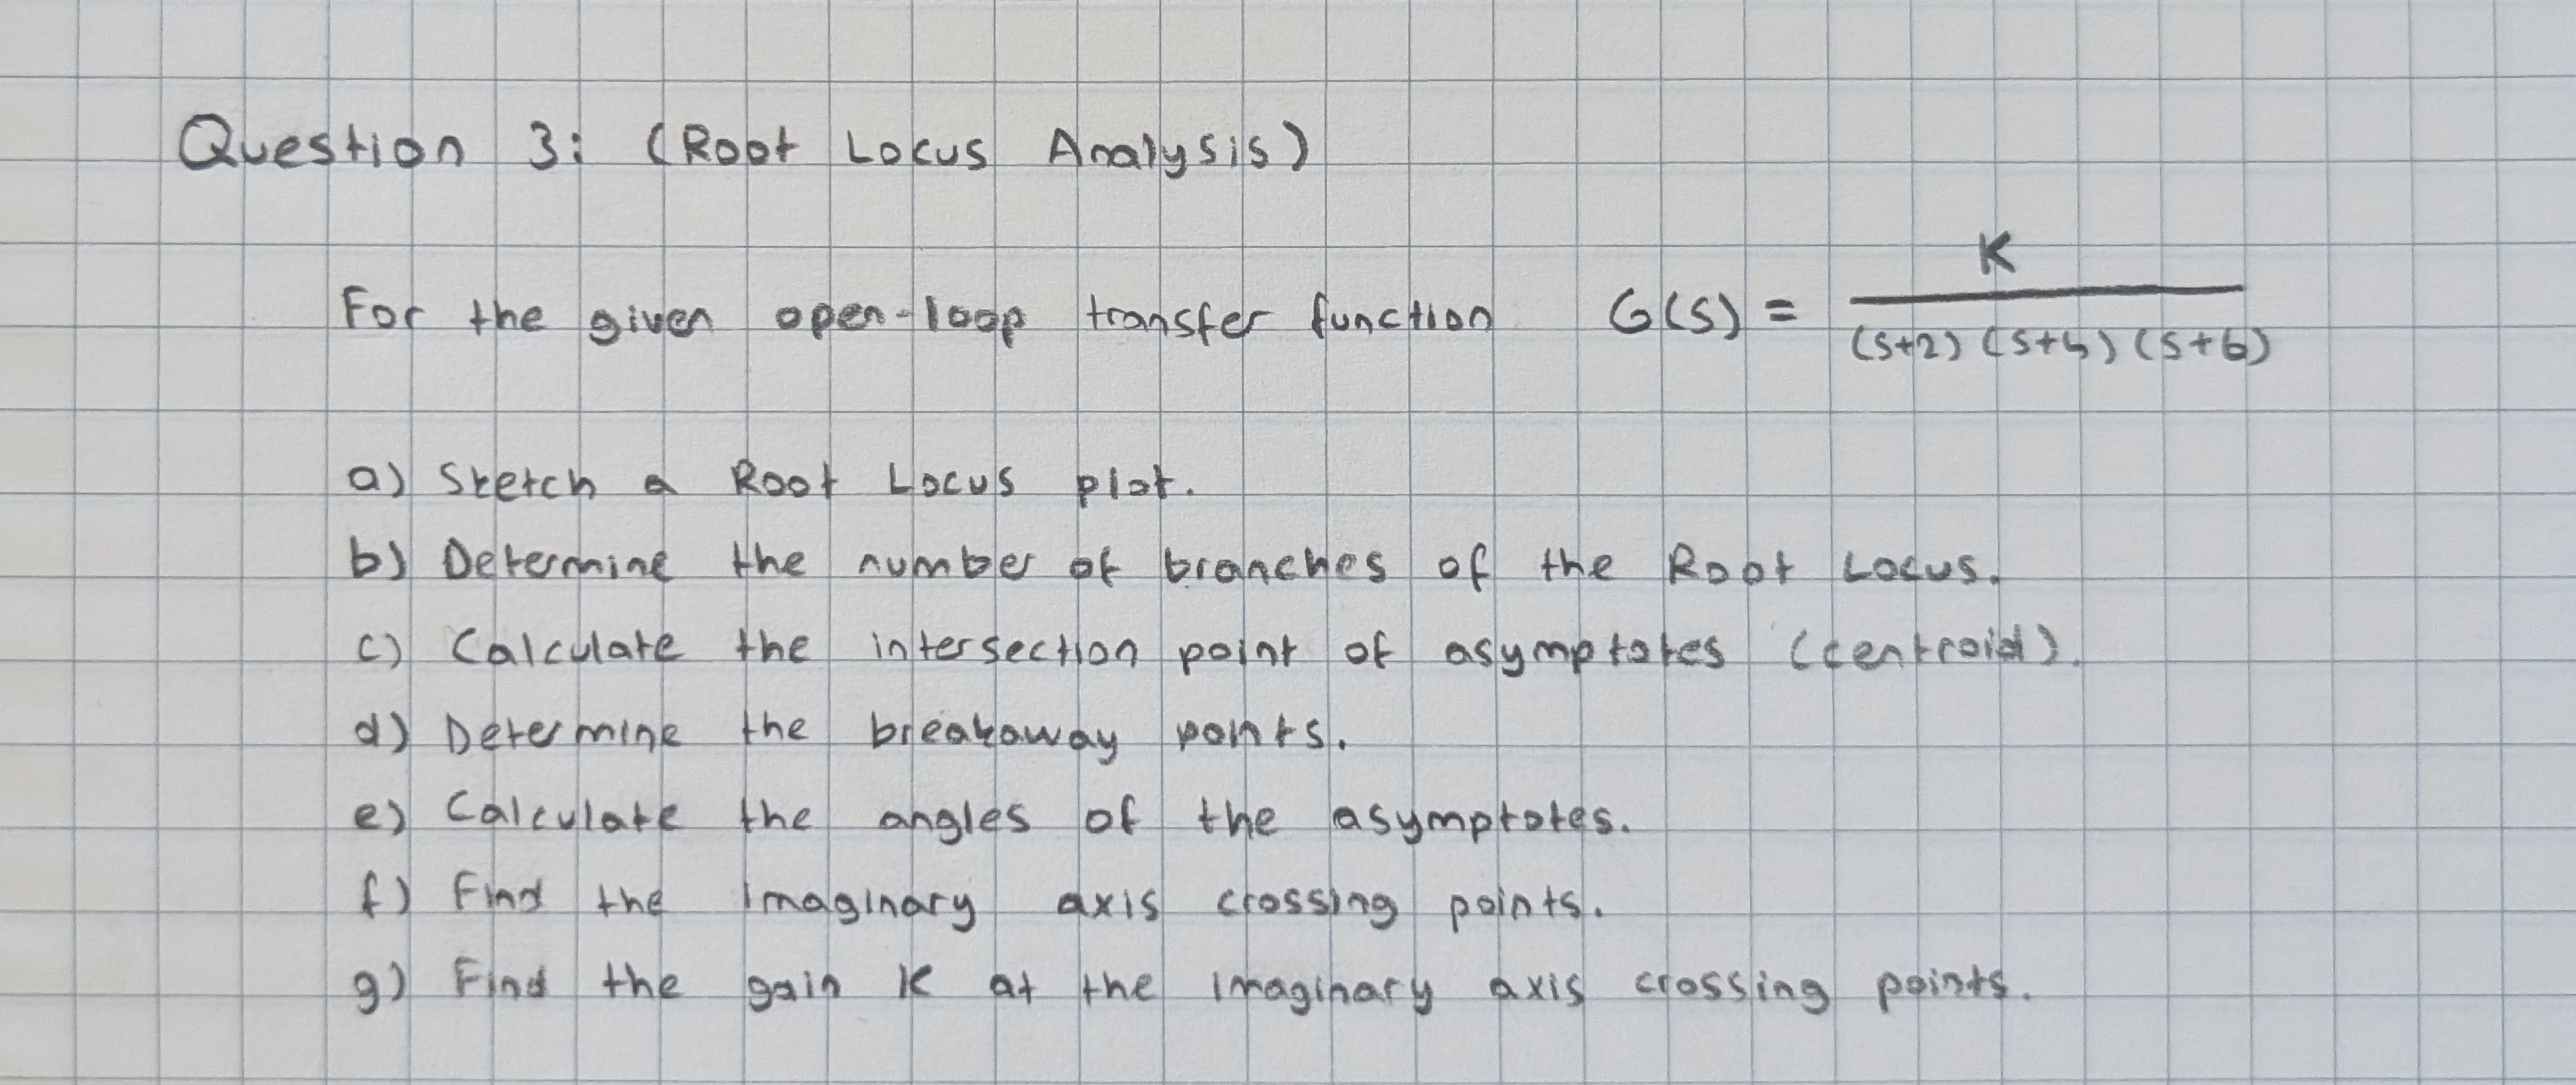 Question 3: (Root Locus Analysis)
For the given open-loop transfer function G(s) = K / (s+2)(s+4)(s+6)
a) Sketch a Root Locus plot.
b) Determine the number of branches of the Root Locus.
c) Calculate the intersection point of asymptotes (centroid).
d) Determine the breakaway points.
e) Calculate the angles of the asymptotes.
f) Find the imaginary axis crossing points.
g) Find the gain K at the imaginary axis crossing points.